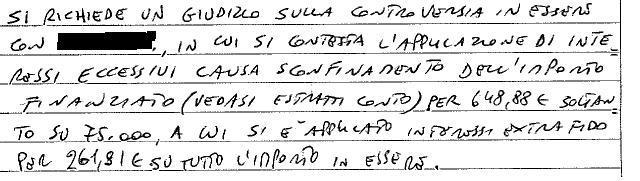 SI RICHIEDE UN GIUDIZIO SULLA CONTROVERSIA IN ESSERE
CON , IN CUI SI CONTESTA L'APPLICAZIONE DI INTE=
RESSI ECCESSIVI CAUSA SCONFINAMENTO DELL'IMPORTO
FINANZIATO (VEDASI ESTRATTI CONTO) PER 648,88 € SOLTAN=
TO SU 75.000, A CUI SI È APPLICATO INTERESSI EXTRAFIDO
PER 261,91 € SU TUTTO L'IMPORTO IN ESSERE.